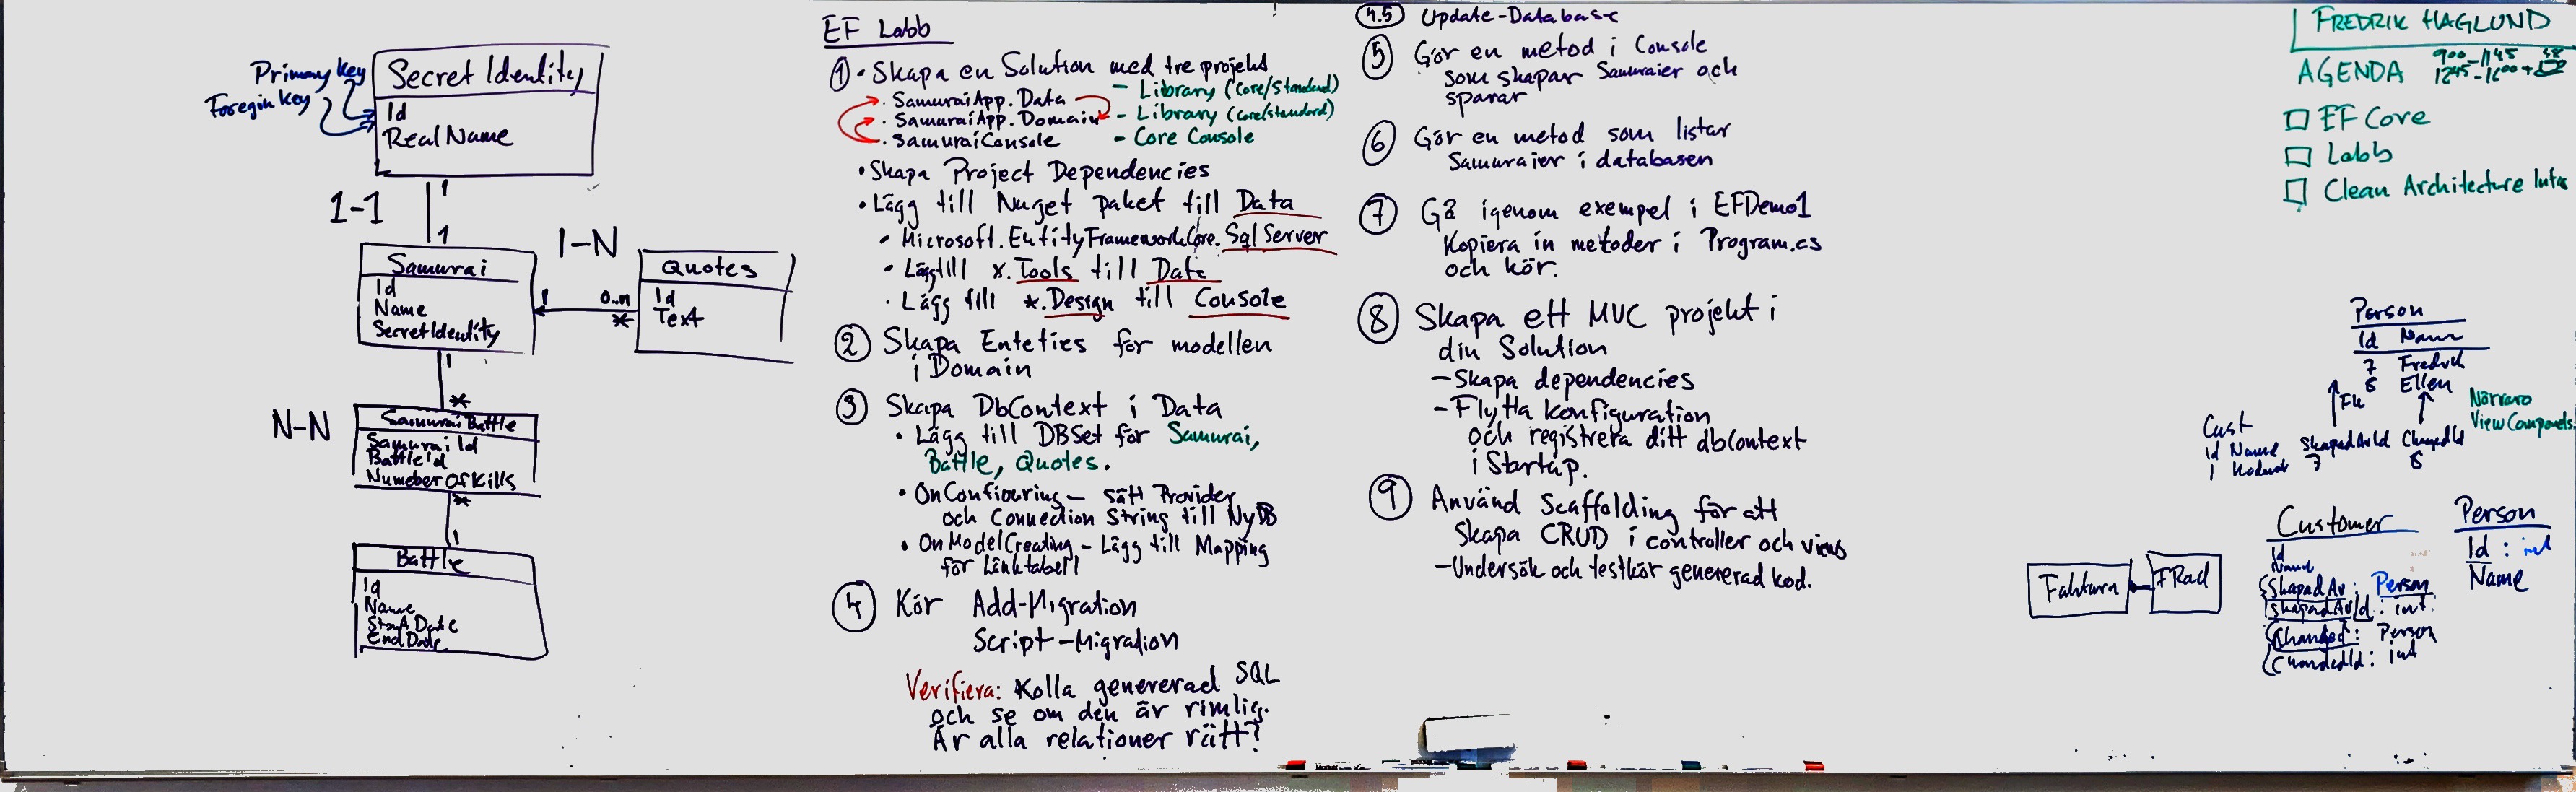 Primary key
Foregin key
Secret Identity
Id
Real Name
1-1
1
1
Samurai
Id
Name
SecretIdentity
1-N
1
0..n
*
Quotes
Id
Text
1
*
N-N
Samurai Battle
Samurai Id
BattleId
Numeber Of Kills
*
1
Battle
Id
Name
Start Date
End Date
EF Labb
① • Skapa en Solution med tre projekt
• SamuraiApp.Data - Library (Core/Standard)
• SamuraiApp.Domain - Library (Core/standard)
• SamuraiConsole - Core Console
• Skapa Project Dependencies
• Lägg till Nuget paket till Data
• Microsoft.EntityFrameworkCore.SqlServer
• Lägg till *.Tools till Data
• Lägg till *.Design till Console
② Skapa Enteties för modellen
i Domain
③ Skapa DbContext i Data
• Lägg till DBSet för Samurai,
Battle, Quotes.
• OnConfiouring - sätt Provider
och Connection String till NyDB
• OnModelCreating - Lägg till Mapping
för Länktabell
④ Kör Add-Migration
Script-Migration
Verifiera: Kolla genererad SQL
och se om den är rimlig.
Är alla relationer rätt?
4.5 Update-Database
⑤ Gör en metod i Console
som skapar Samuraier och
sparar
⑥ Gör en metod som listar
Samuraier i databasen
⑦ Gå igenom exempel i EFDemo1
Kopiera in metoder i Program.cs
och kör.
⑧ Skapa ett MVC projekt i
din Solution
- Skapa dependencies
- Flytta konfiguration
och registrera ditt dbContext
i Startup.
⑨ Använd Scaffolding för att
skapa CRUD i controller och views
- Undersök och testkör genererad kod.
FREDRIK HAGLUND
AGENDA
9⁰⁰-11⁴⁵
12⁴⁵-16⁰⁰+
EF Core
Labb
Clean Architecture Intro
Person
Id Namn
7 Fredrik
8 Ellen
FK
Cust
Id Name SkapadAvId ChangedId
1 7 8
View Componets
Faktura
FRad
Customer
Id
Name
SkapadAv: Person
SkapadAvId: int
Changed: Person
ChandedId: int
Person
Id: int
Name